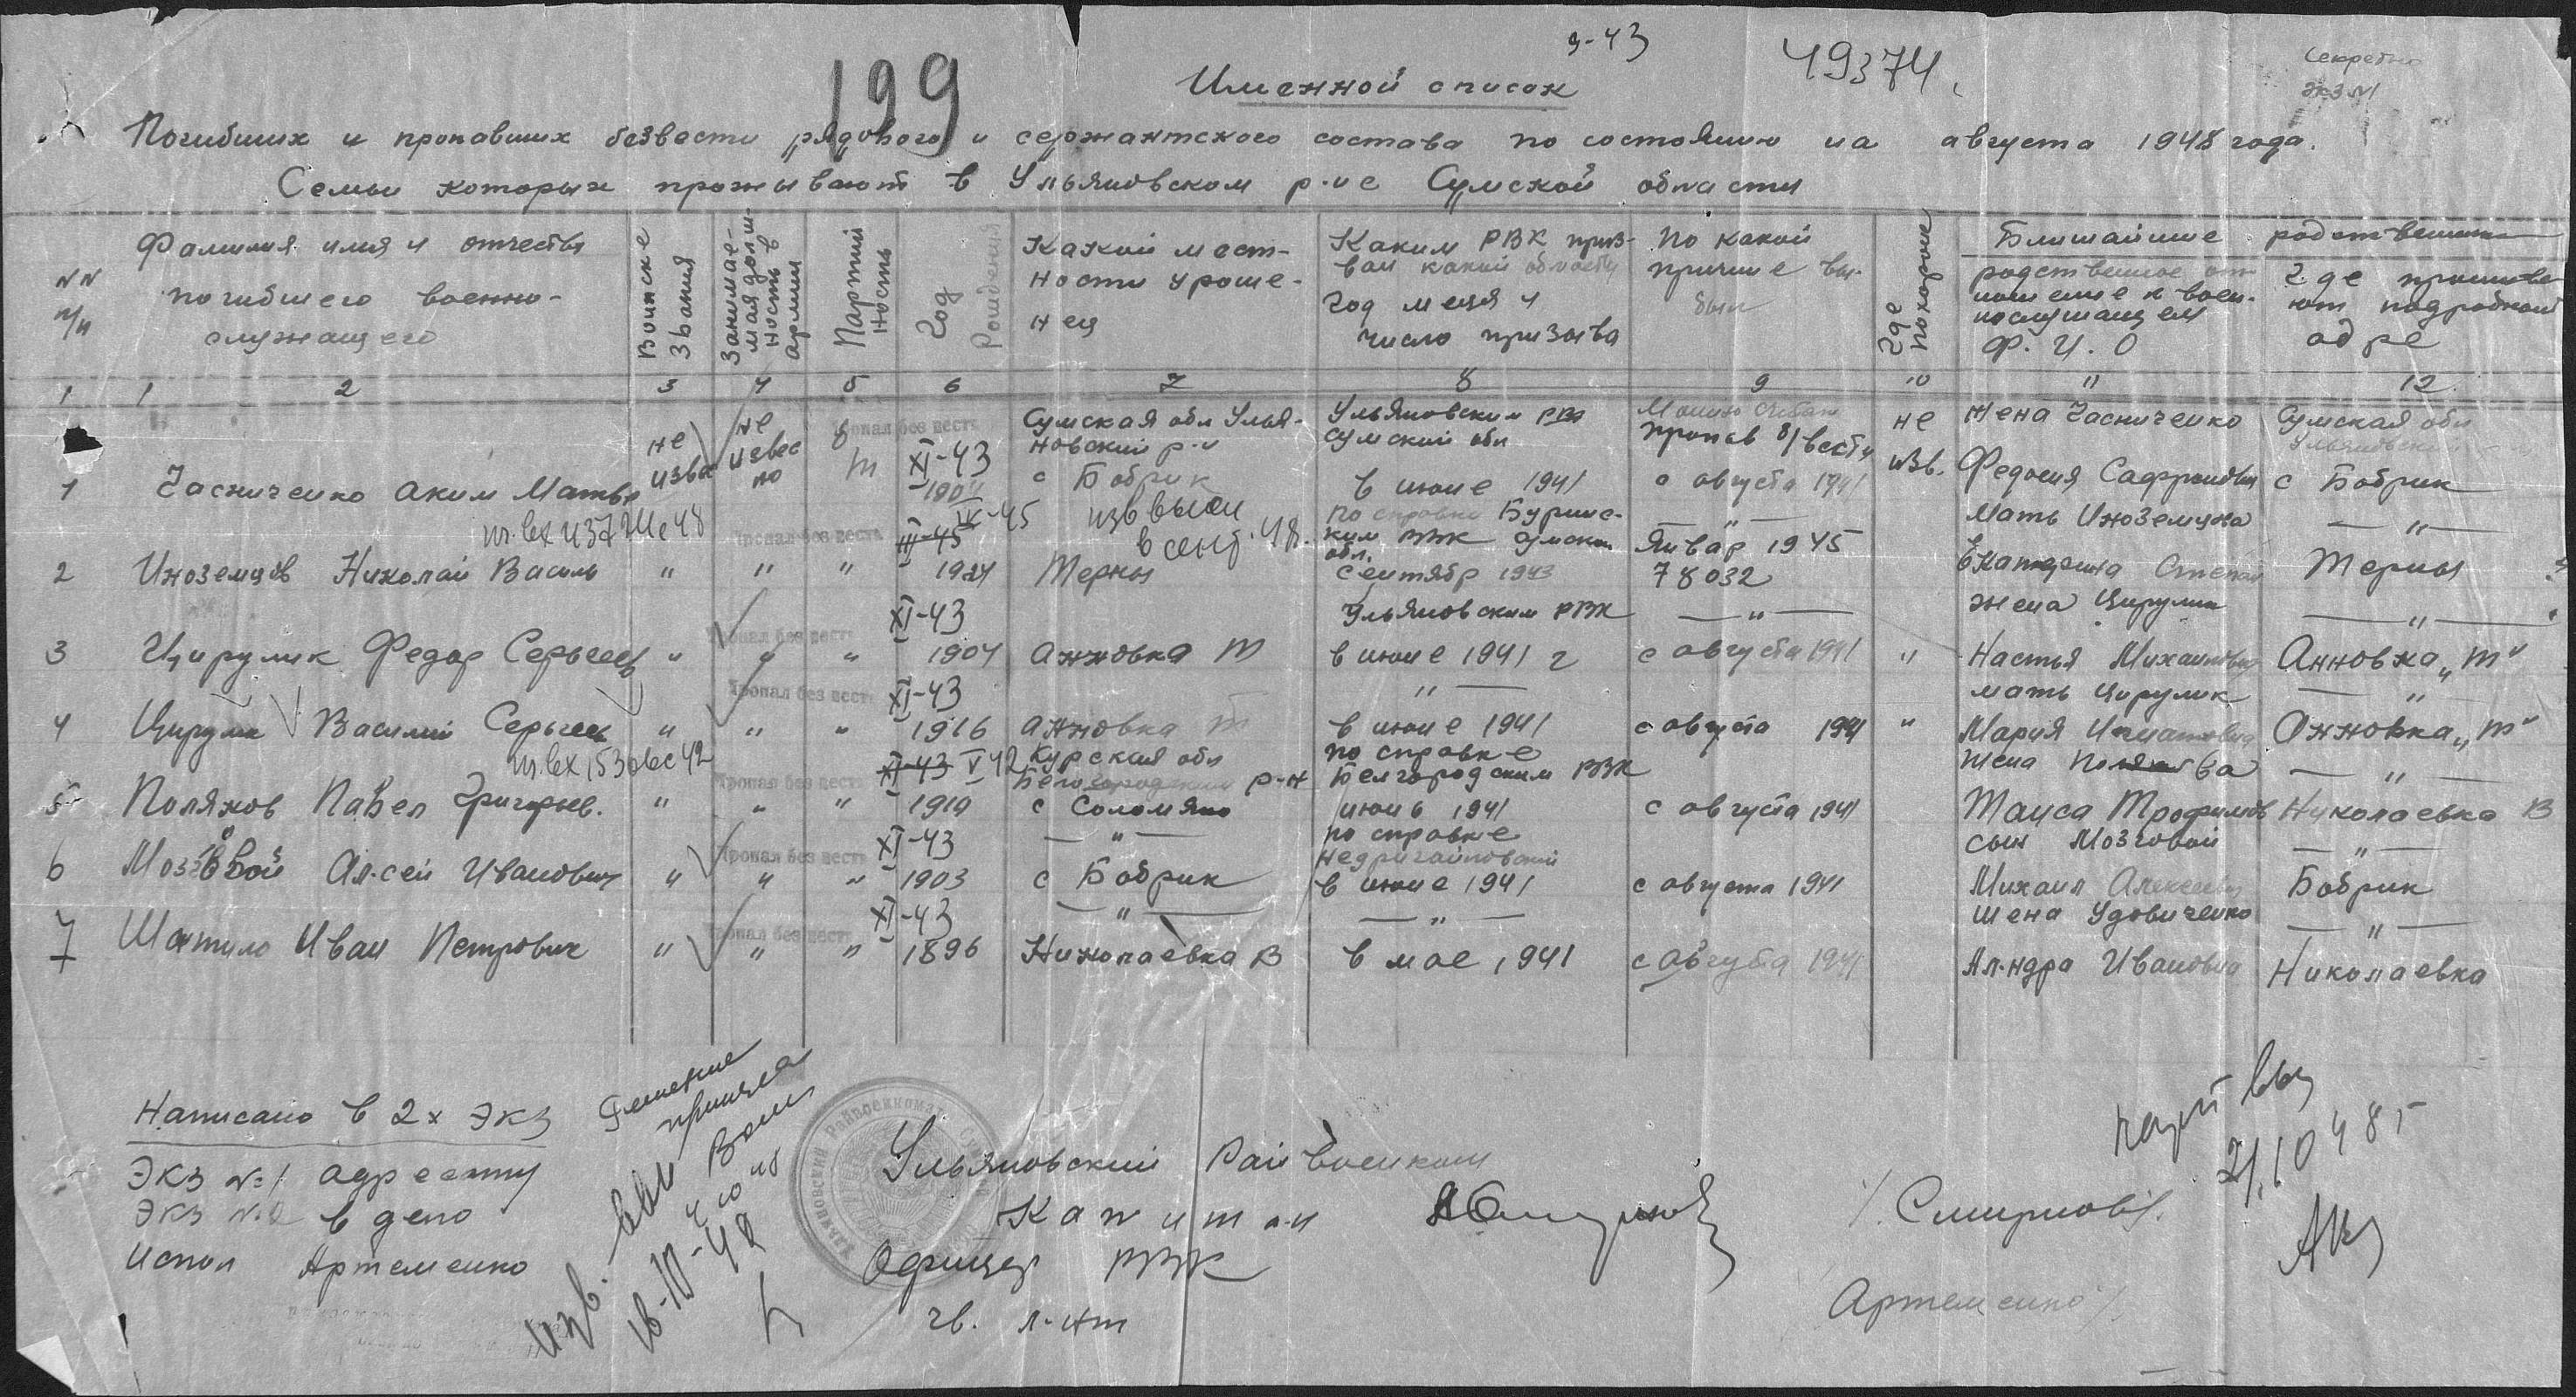 199
9-43
49374
Секретно
экз №1
Именной список
Погибших и пропавших безвести рядового и сержантского состава по состоянию на августа 1948 года.
Семьи которых проживают в Ульяновском р-не Сумской области
№№ п/п
Фамилия имя и отчества погибшего военно-служащего
Воинске звания
Занимае-мая долж-ность в армии
Партий ность
Год рождения
Какой мест-ности уроже-нец
Каким РВК приз-ван какой области Год месяц и число призыва
По какой причине вы-был
Где похороне
Ближайшие родственники
родственное от ношение к воен-нослужащем Ф. И. О
где прожива ют подробной адре
1 1 2 3 4 5 6 7 8 9 10 11 12
1 Часниченко Аким Матве не извес не извес но б п Пропал без вести XI-43 1904 Сумская обл Улья-новский р-н с Бобрик Ульяновским РВК Сумской обл в июне 1941 пропав б/вести с августа 1941 не изв. Жена Часниченко Федосия Сафроновна Сумская обл Ульяновский с Бобрик
2 Иноземцев Николай Василь " " " Пропал без вести III-45 IV-45 1924 Терны изв высл в сент. 48. по справки Буринс-ким РВК Сумской обл. Сентябр 1943 — " — Январ 1945 78032 Мать Иноземцева Екатерина Степан — " — Терны
3 Цирулик Федор Сергеев " " " Пропал без вести XI-43 1904 Анновка Т Ульяновским РВК в июне 1941 г — " — с августа 1941 " жена Цирулик Настья Михайловна — " — Анновка „Т"
4 Цирулик Василий Сергеев " " " Пропал без вести XI-43 1916 Анновка Т " — в июне 1941 с августа 1941 " мать Цирулик Мария Игнатовна — " — Анновка „Т"
5 Поляков Павел Григорьев. " " " Пропал без вести XI-43 V-42 1919 Курская обл Белгородский р-н с Соломяно по справке Белгородским РВК июнь 1941 с августа 1941 жена Полякова Таиса Трофимов — " — Николаевка В
6 Мозговой Ал.сей Иванович " " " Пропал без вести XI-43 1903 — " — с Бобрик по справке Недригайловский в июне 1941 с августа 1941 сын Мозговой Михаил Алексеевич — " — Бобрик
7 Шатило Иван Петрович " " " Пропал без вести XI-43 1896 — " — Николаевка В — " — в мае 1941 с августа 1941 жена Удовиченко Ал.ндра Ивановна — " — Николаевка
Написано в 2х экз
Экз №1 адресату
Экз №2 в дело
Испол Артеменко
Решение приняла
изв.
Ульяновский Райвоенком
Капитан
/. Смирнов/.
Офицер РВК
гв. л-нт
Артеменко/
21.10 48 г